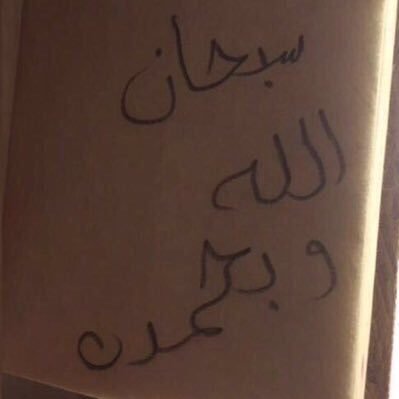 سبحان
الله
وبحمده